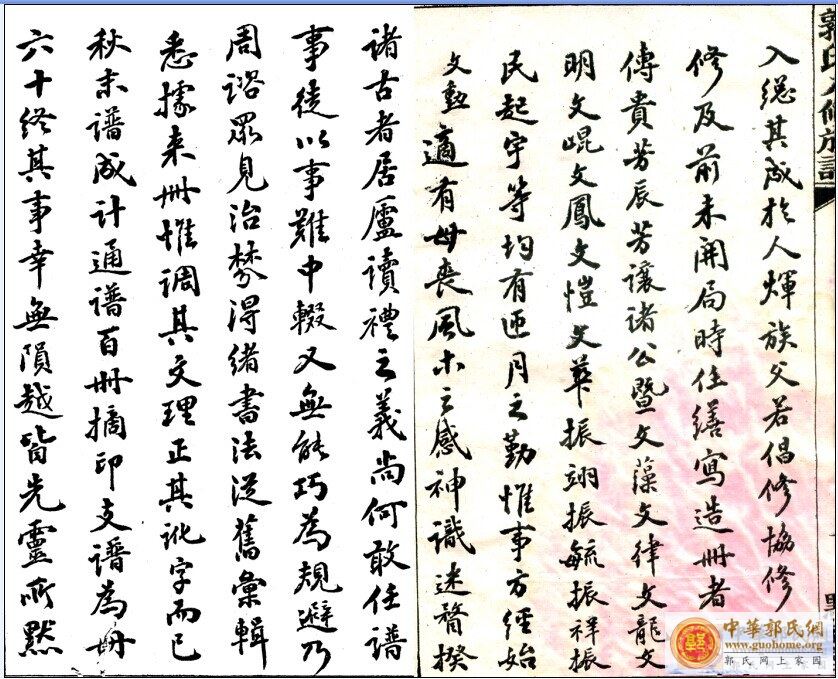 郭氏八修族譜
入總其成於人煇族父若倡修協修
修及前未開局時任繕寫造冊者
傳貴芳辰芳讓諸公暨文藻文律文龍文
明文崐文鳳文愷文華振翊振毓振祥振
民起宇等均有匝月之勤惟事方經始
文勳適有母喪風木之感神識迷瞀揆
諸古者居廬讀禮之義尚何敢任譜
事徒以事難中輟又無能巧為規避乃
周諮眾見治棼得緒書法從舊彙輯
悉據來冊惟調其文理正其訛字而已
秋末譜成計通譜百冊摘印支譜為冊
六十終其事幸無隕越皆先靈所默
中華郭氏網
www.guohome.org
郭氏网上家园